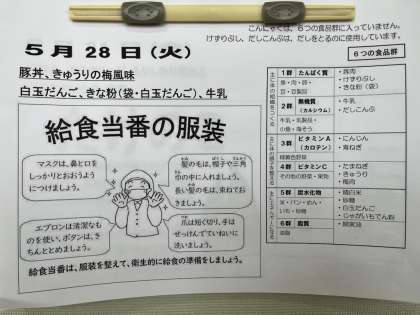 こんにゃくは、6つの食品群に入っていません。
けずりぶし、だしこんぶは、だしをとるのに使用しています。
5月28日(火)
豚丼、きゅうりの梅風味
白玉だんご、きな粉(袋・白玉だんご)、牛乳
給食当番の服装
マスクは、鼻と口を
しっかりとおおうように
つけましょう。
髪の毛は、帽子や三角
巾の中に入れましょう。
長い髪の毛は、束ねておき
ましょう。
エプロンは清潔なも
のを使い、ボタンは、き
ちんととめましょう。
爪は短く切り、手は
せっけんでていねいに
洗いましょう。
給食当番は、服装を整えて、衛生的に給食の準備をしましょう。
6つの食品群
1群 たんぱく質
魚・肉・卵・
豆・豆製品
・豚肉
・けずりぶし
・きな粉(袋)
2群 無機質
(カルシウム)
牛乳・乳製品・
小魚・海そう
・牛乳
・だしこんぶ
3群 ビタミンA
(カロテン)
緑黄色野菜
・にんじん
・青ねぎ
4群 ビタミンC
その他の野菜・果物
・たまねぎ
・きゅうり
・梅肉
5群 炭水化物
米・パン・めん・
いも・砂糖
・精白米
・砂糖
・白玉だんご
・じゃがいもでん粉
6群 脂質
油脂